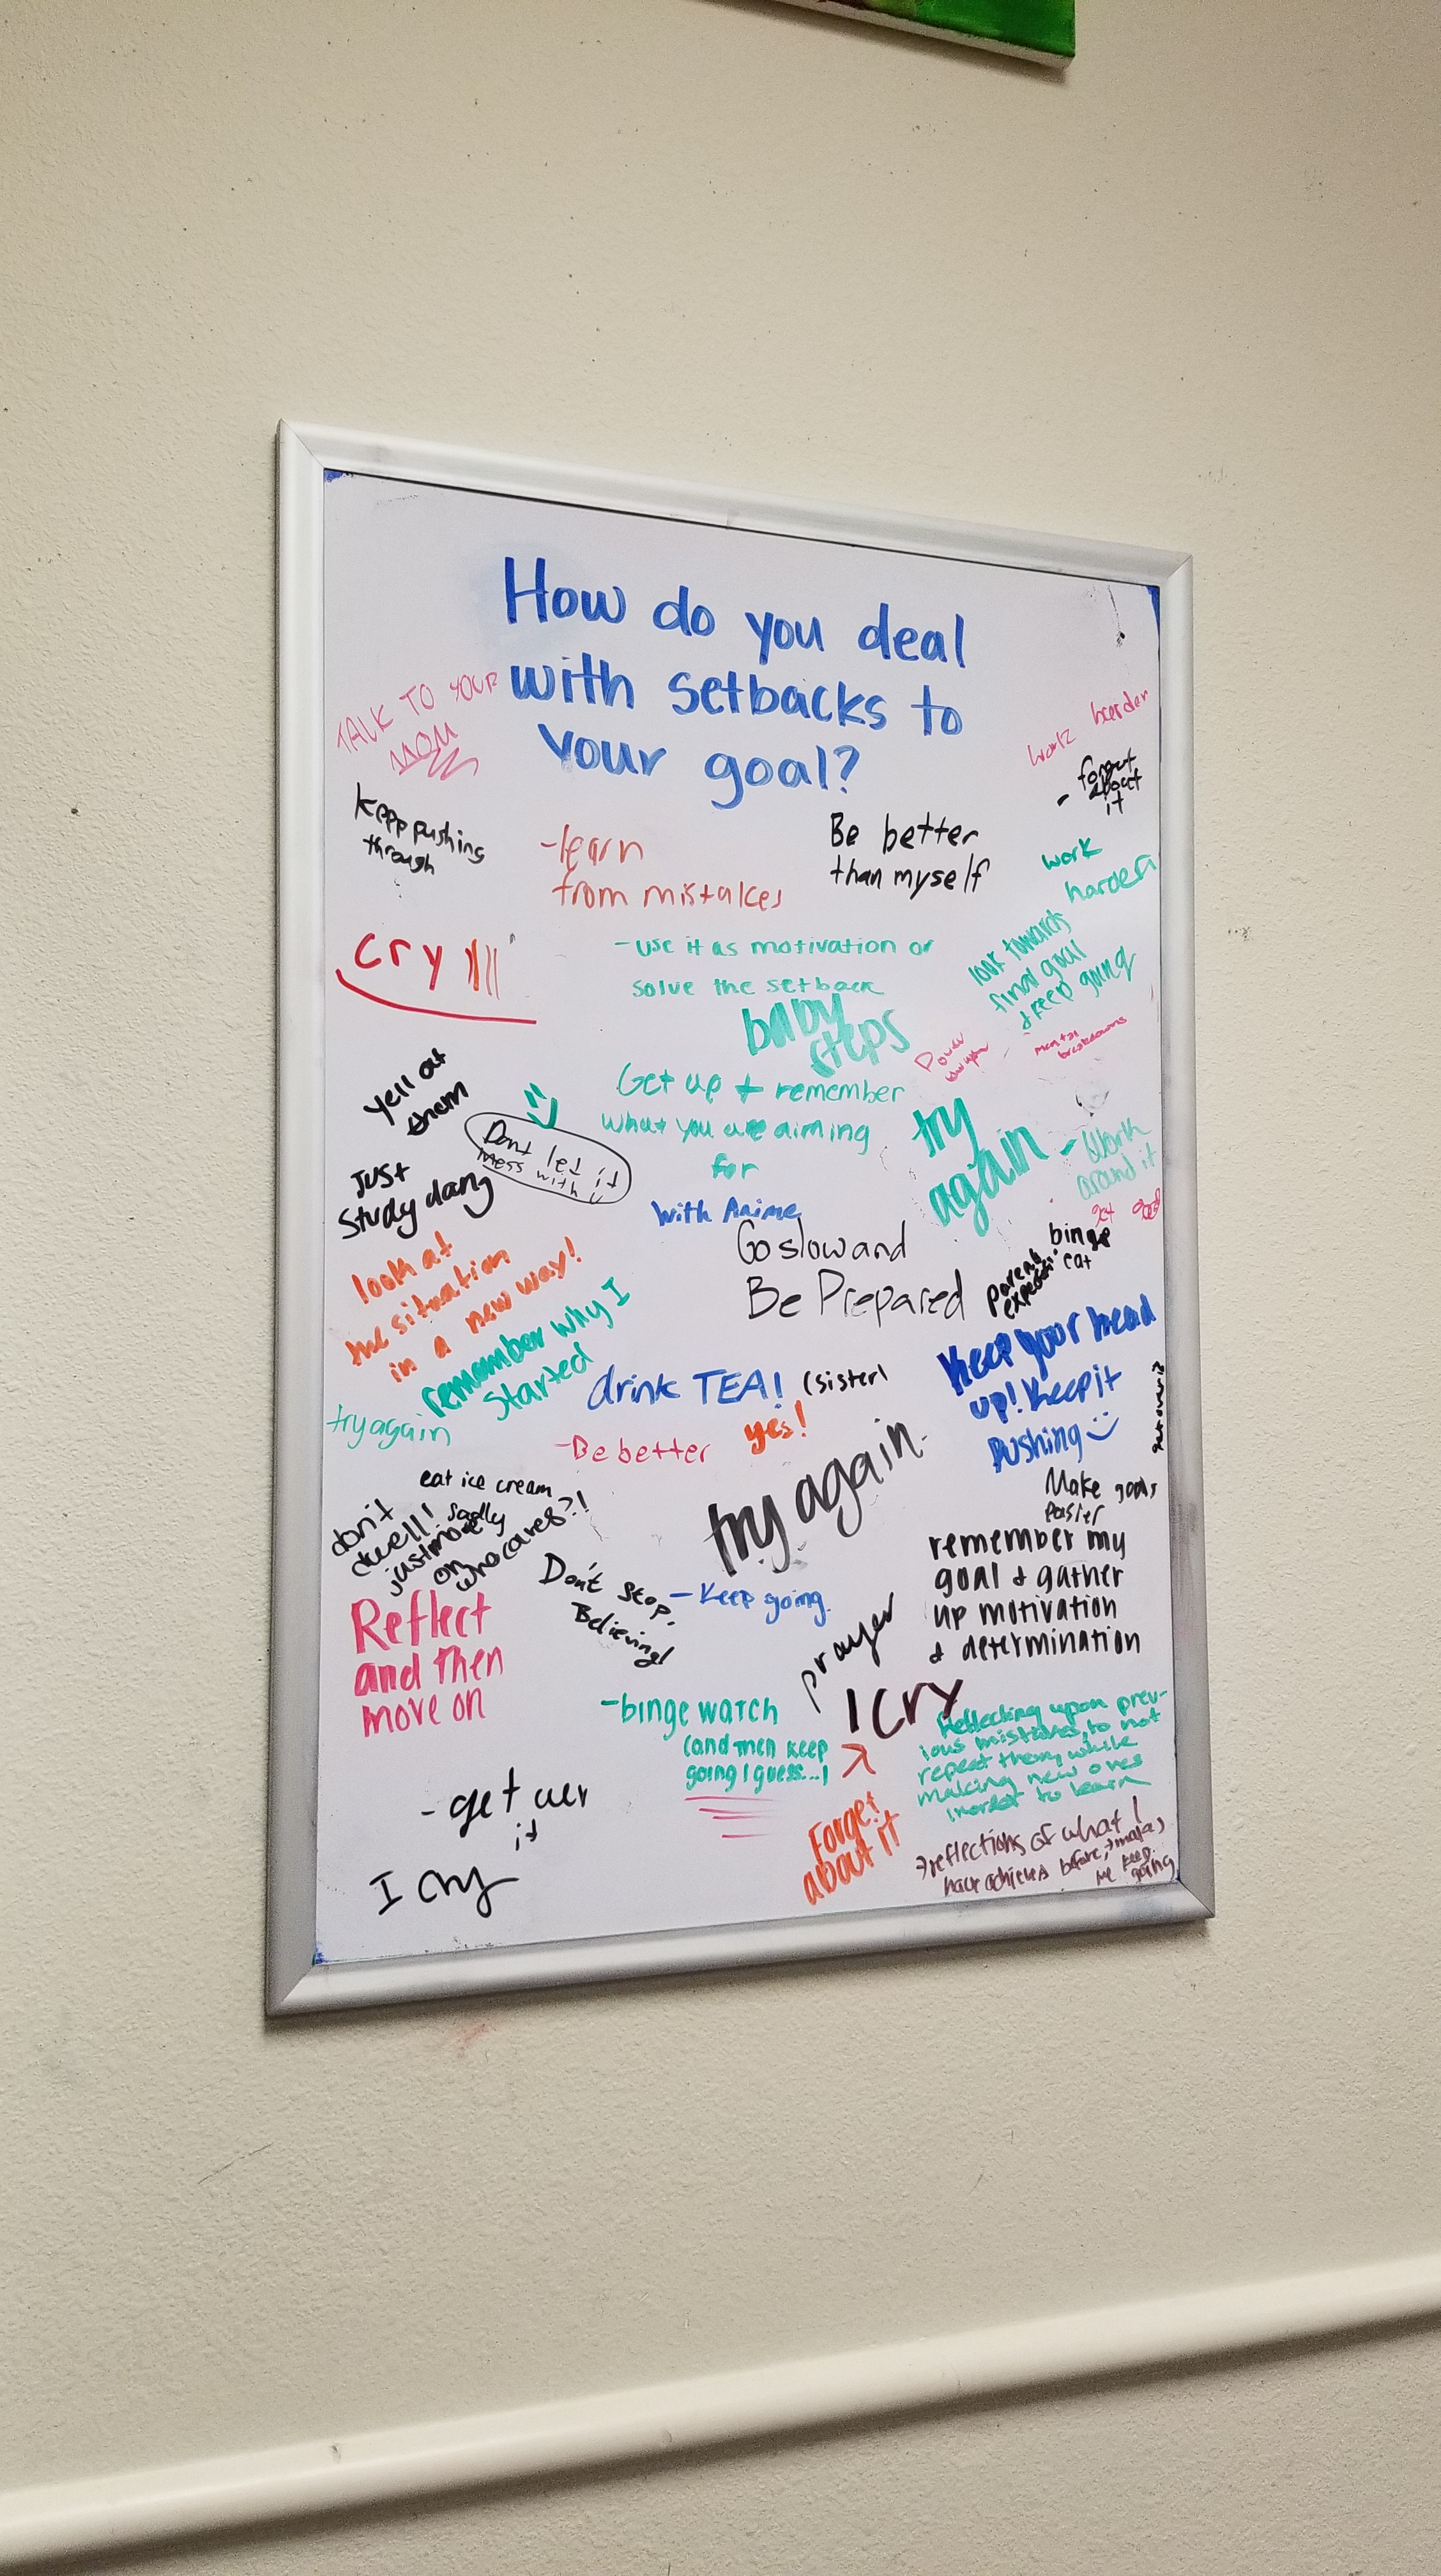 How do you deal
with setbacks to
your goal?
TALK TO YOUR
MOM
work harder
- forget
about
it
Keep pushing
through
-learn
from mistakes
Be better
than myself
work
harder
cry
-use it as motivation or
solve the setback
look towards
final goal
& keep going
baby
steps
mental
breakdowns
Yell at
them
Get up + remember
what you are aiming
for
Dont let it
mess with u
try
again
- Work
around it
Just
Study dang
with Anime
get good
Go slow and
Be Prepared
binge
eat
look at
the situation
in a new way!
remember why I
started
Keep your head
up! Keep it
pushing
drink TEA! (sister)
yes!
try again
-Be better
get over it
try again.
eat ice cream
sadly
don't
dwell!
just move
on
who cares?!
Make goals
easier
remember my
goal & gather
up motivation
& determination
Don't stop,
Believing!
- Keep going.
Reflect
and then
move on
prayer
I cry
-binge watch
(and then keep
going I guess...)
Reflecting upon prev-
ious mistakes, to not
repeat them, while
making new ones
inorder to learn
- get over
it
Forget
about it
reflections of what I
have achieved before, makes
me keep
going
I cry